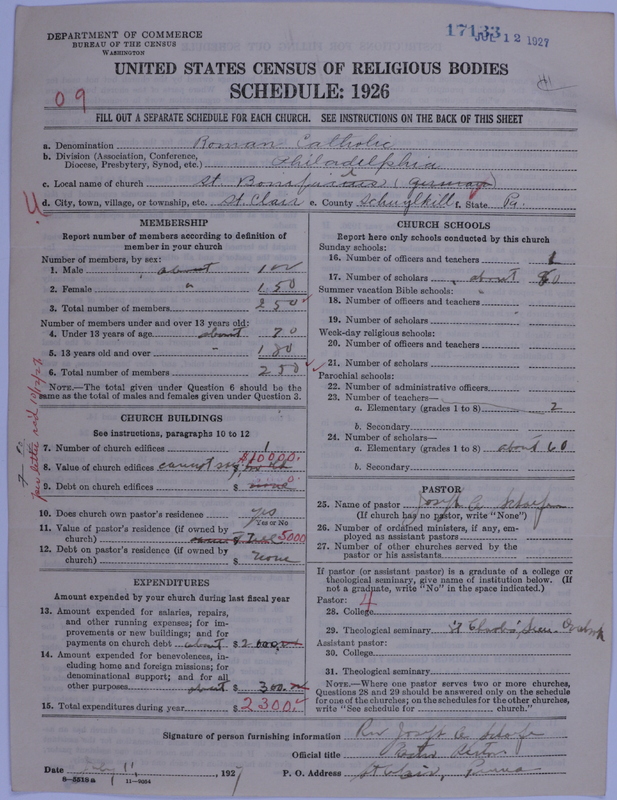 DEPARTMENT OF COMMERCE
BUREAU OF THE CENSUS
WASHINGTON
17133
JUL 12 1927
UNITED STATES CENSUS OF RELIGIOUS BODIES
SCHEDULE: 1926
09
FILL OUT A SEPARATE SCHEDULE FOR EACH CHURCH. SEE INSTRUCTIONS ON THE BACK OF THIS SHEET
a. Denomination Roman Catholic
b. Division (Association, Conference, Diocese, Presbytery, Synod, etc.) Philadelphia
c. Local name of church St. Bonifacius (German)
d. City, town, village, or township, etc. St. Clair e. County Schuylkill f. State Pa.
MEMBERSHIP
Report number of members according to definition of
member in your church
Number of members, by sex:
1. Male about 100
2. Female " 150
3. Total number of members 250
Number of members under and over 13 years old:
4. Under 13 years of age about 70
5. 13 years old and over 180
6. Total number of members 250
NOTE.—The total given under Question 6 should be the
same as the total of males and females given under Question 3.
per letter recd 10/12/27
CHURCH BUILDINGS
See instructions, paragraphs 10 to 12
7. Number of church edifices 1
8. Value of church edifices cannot say $10000.
9. Debt on church edifices $ none 0
10. Does church own pastor's residence yes
Yes or No
11. Value of pastor's residence (if owned by
church) $ 5000
12. Debt on pastor's residence (if owned by
church) $ none
EXPENDITURES
Amount expended by your church during last fiscal year
13. Amount expended for salaries, repairs,
and other running expenses; for im-
provements or new buildings; and for
payments on church debt about $ 2000.
14. Amount expended for benevolences, in-
cluding home and foreign missions; for
denominational support; and for all
other purposes about $ 300.
15. Total expenditures during year $ 2300.
CHURCH SCHOOLS
Report here only schools conducted by this church
Sunday schools:
16. Number of officers and teachers
17. Number of scholars about 80
Summer vacation Bible schools:
18. Number of officers and teachers
19. Number of scholars
Week-day religious schools:
20. Number of officers and teachers
21. Number of scholars
Parochial schools:
22. Number of administrative officers
23. Number of teachers—
a. Elementary (grades 1 to 8) 2
b. Secondary
24. Number of scholars—
a. Elementary (grades 1 to 8) about 60
b. Secondary
PASTOR
25. Name of pastor Joseph A.
(If church has no pastor, write "None")
26. Number of ordained ministers, if any, em-
ployed as assistant pastors
27. Number of other churches served by the
pastor or his assistants
If pastor (or assistant pastor) is a graduate of a college or
theological seminary, give name of institution below. (If
not a graduate, write "No" in the space indicated.)
Pastor: 4
28. College
29. Theological seminary St Charles' Sem. Overbrook
Assistant pastor:
30. College
31. Theological seminary
NOTE.—Where one pastor serves two or more churches,
Questions 28 and 29 should be answered only on the schedule
for one of the churches; on the schedules for the other churches,
write "See schedule for ........ church."
Signature of person furnishing information Rev Joseph A.
Official title Rector
Date July 11, 1927
P. O. Address St Clair, Penna
8-5518a 11-2054